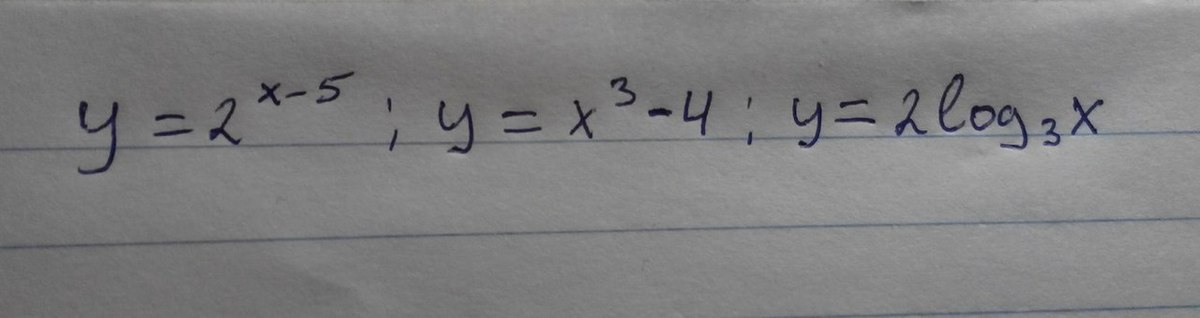 y = 2^{x-5} ; y = x^3 - 4 ; y = 2 log_3 x